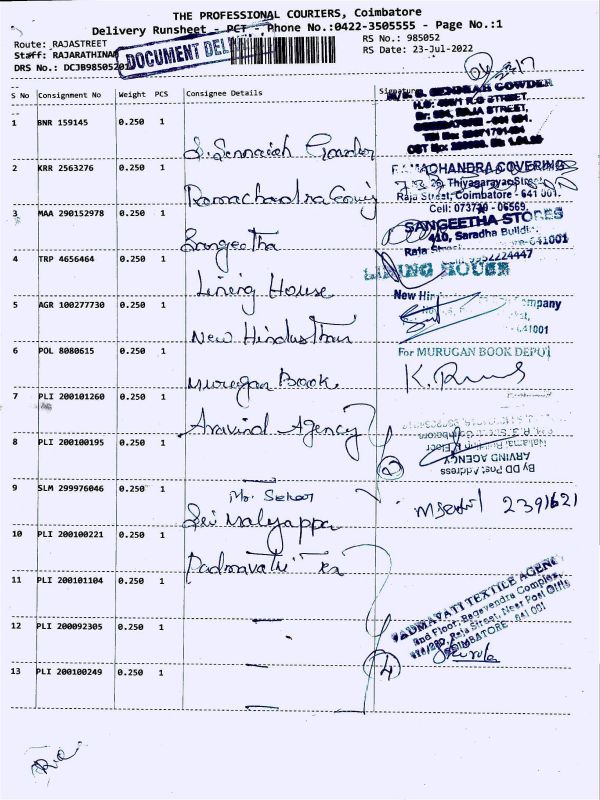 THE PROFESSIONAL COURIERS, Coimbatore
Delivery Runsheet - PCT - Phone No.:0422-3505555 - Page No.:1
Route: RAJASTREET
RS No.: 985052
Staff: RAJARATHINAM
RS Date: 23-Jul-2022
DRS No.: DCJB98505201
DOCUMENT DEL
S No Consignment No Weight PCS Consignee Details Signature
1 BNR 159145 0.250 1 S. Sennaiah Gowder
M/s S. SENNIAH GOWDER
2 KRR 2563276 0.250 1 Ramachandra Covering
RAMACHANDRA COVERING
Thiyagaraya Street
Raja Street, Coimbatore - 641 001.
Cell: 073730 - 06569.
3 MAA 290152978 0.250 1 Sangeetha
SANGEETHA STORES
410, Saradha Buildi
Raja Street
641001
4 TRP 4656464 0.250 1 Lining House
LINING HOUSE
5 AGR 100277730 0.250 1 New Hindusthan
New Hin ompany
641001
6 POL 8080615 0.250 1 Murugan Book
For MURUGAN BOOK DEPOT
7 PLI 200101260 0.250 1 Aravind Agency
8 PLI 200100195 0.250 1
2
By DD Post Address
ARVIND AGENCY
9 SLM 299976046 0.250 1 Sri Malyappa
2391621
10 PLI 200100221 0.250 1 Padmavathi Tex
11 PLI 200101104 0.250 1
PADMAVATI TEXTILE AGENC
2nd Floor, Ragavendra Complex,
Raja Street, Near Post Office
COIMBATORE - 641 001
12 PLI 200092305 0.250 1
13 PLI 200100249 0.250 1
4